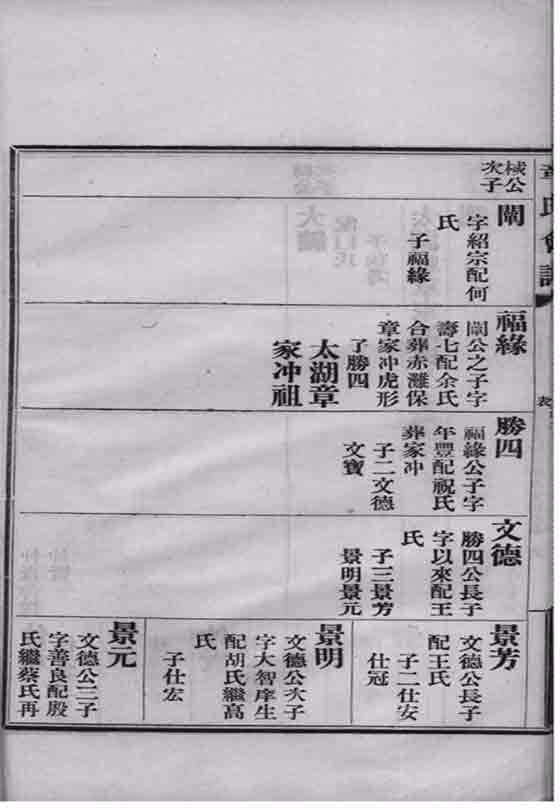 章氏會譜
表
棫公
次子
閘
字紹宗配何
氏
子福緣
福緣
閘公之子字
壽七配余氏
合葬赤灘保
章家冲虎形
了勝四
太湖章
家冲祖
勝四
福緣公子字
年豐配祝氏
葬家冲
子二文德
文寶
文德
勝四公長子
字以來配王
氏
子三景芳
景明景元
景芳
文德公長子
配王氏
子二仕安
仕冠
景明
文德公次子
字大智庠生
配胡氏繼高
氏
子仕宏
景元
文德公三子
字善良配殷
氏繼蔡氏再